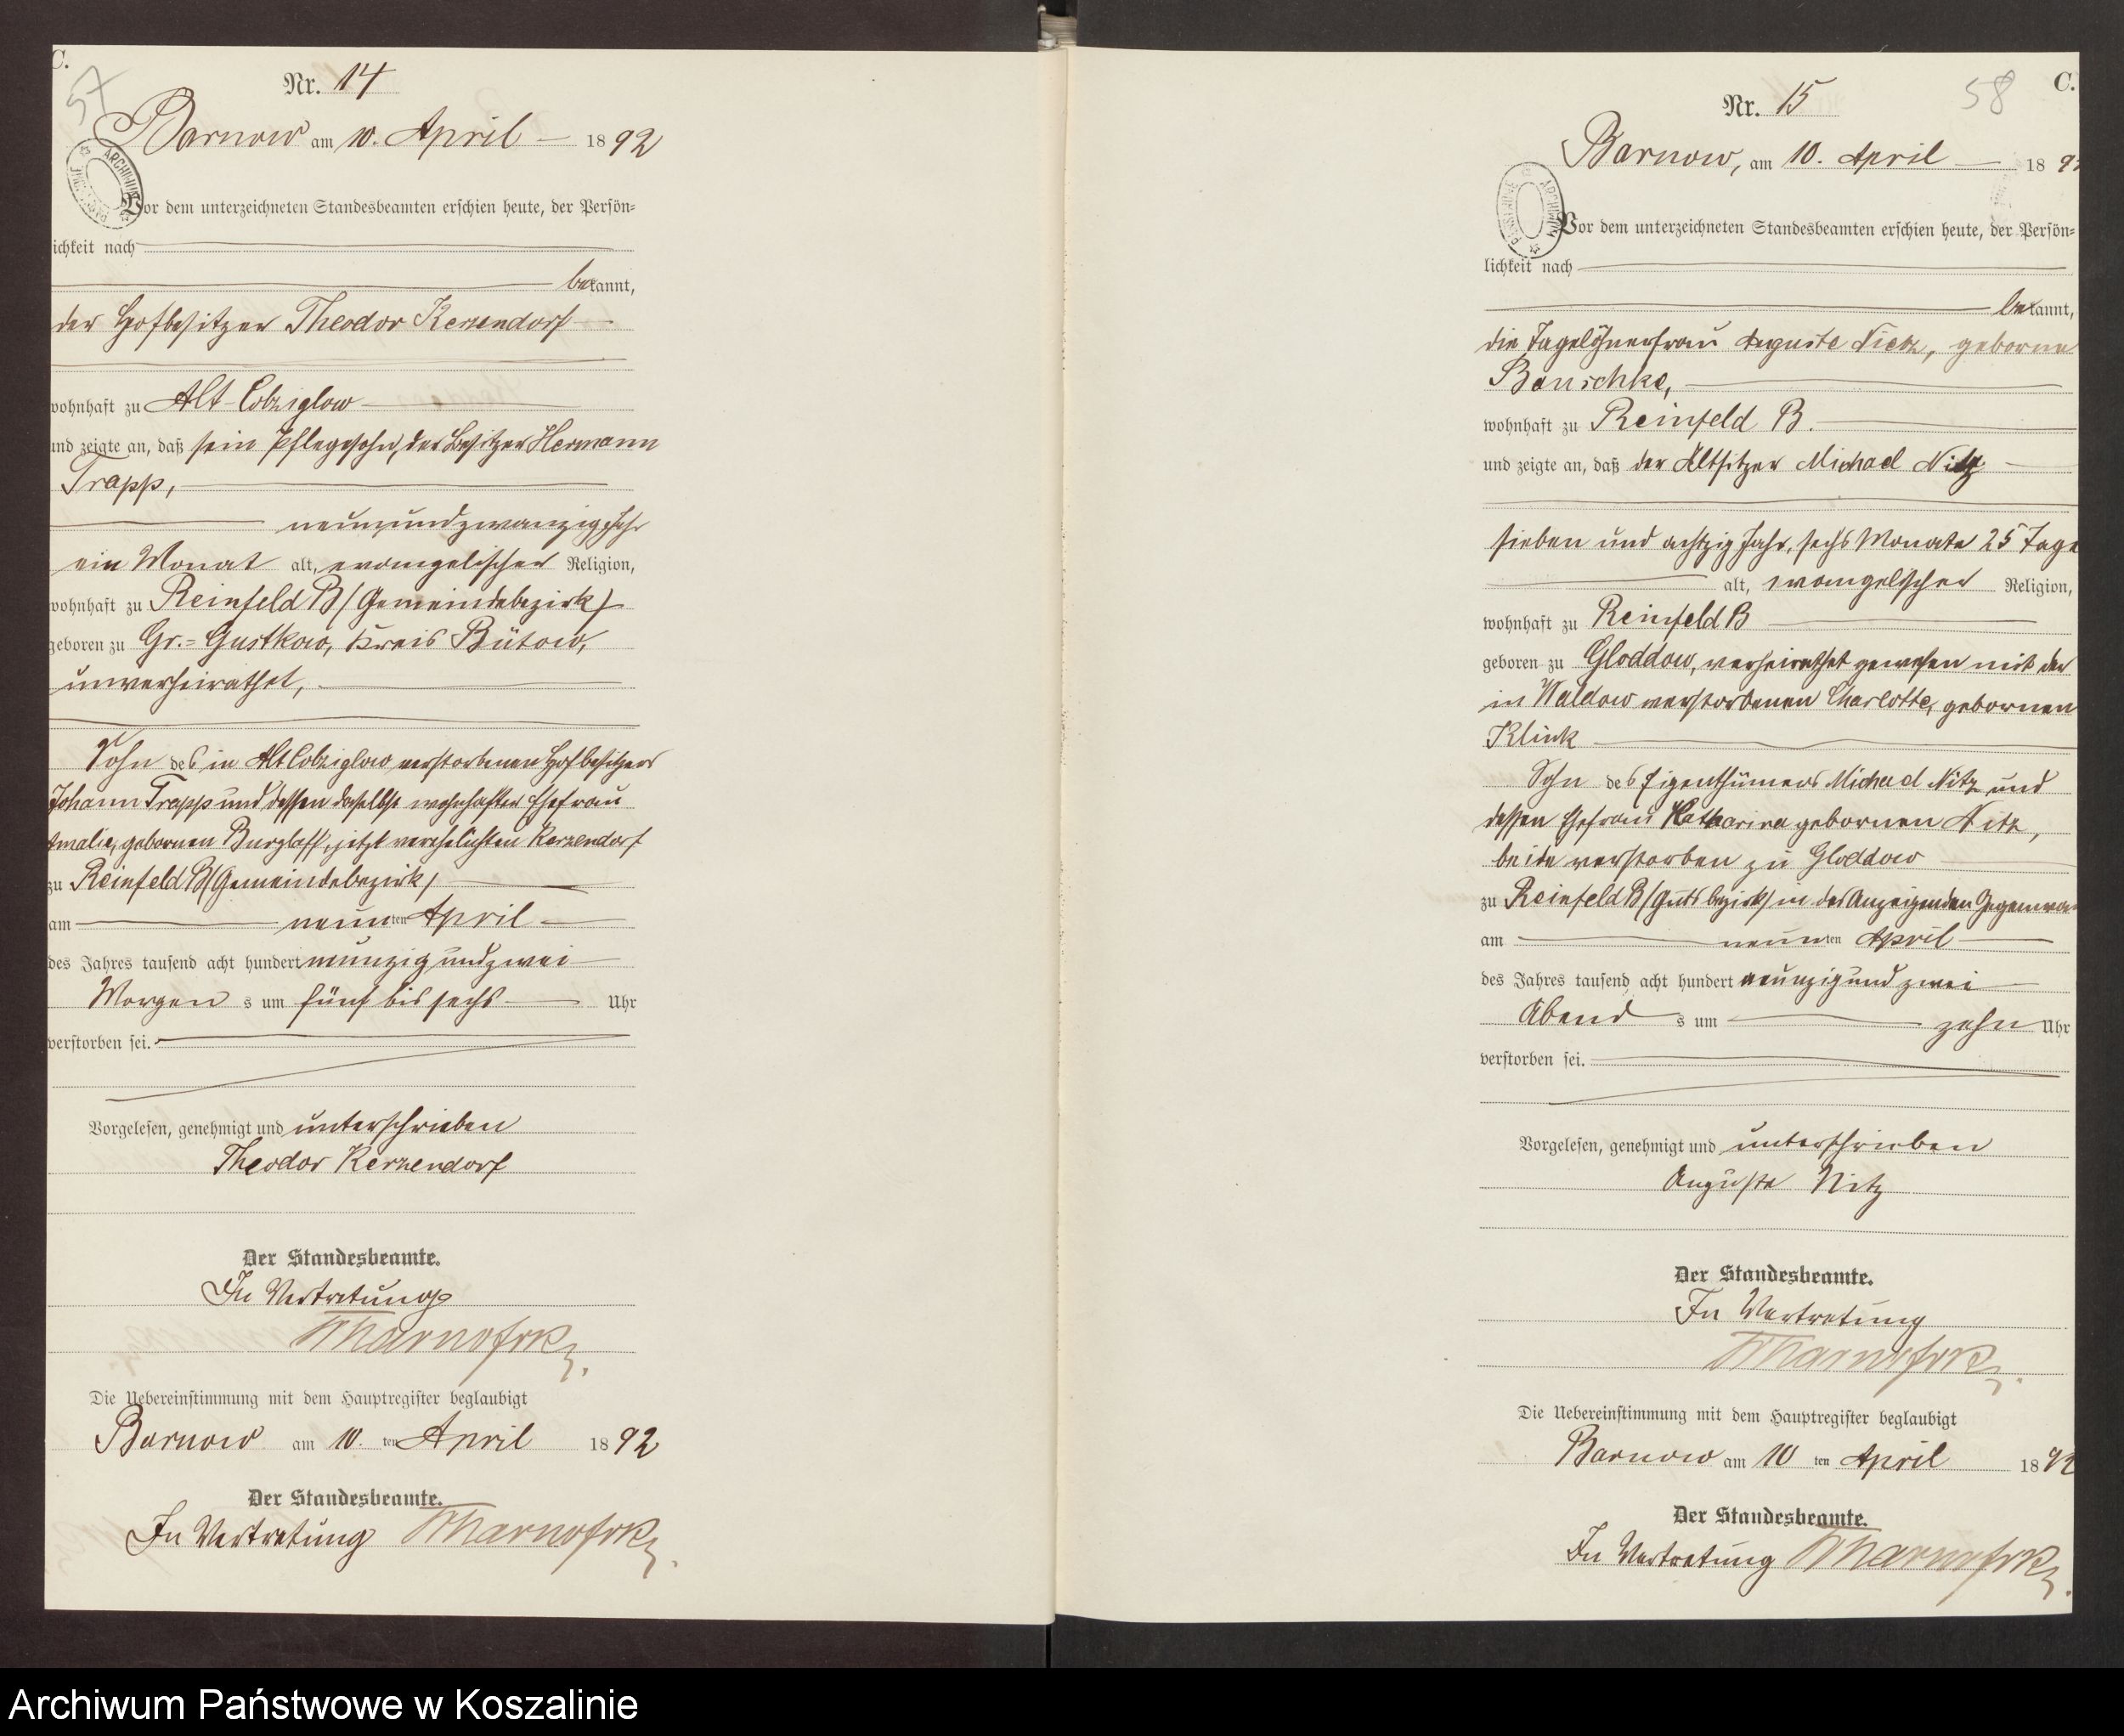 C.
57
Nr. 14
Barnow am 10. April 1892
Vor dem unterzeichneten Standesbeamten erschien heute, der Persön=
lichkeit nach
bekannt,
der Hofbesitzer Theodor Kerzendorf
wohnhaft zu Alt Colziglow
und zeigte an, daß sein Pflegesohn, der Besitzer Hermann
Trapp,
neunundzwanzig Jahr
ein Monat alt, evangelischer Religion,
wohnhaft zu Reinfeld B (Gemeindebezirk)
geboren zu Gr.=Gustkow, Kreis Bütow,
unverheirathet,
Sohn des in Alt Colziglow verstorbenen Hofbesitzers
Johann Trapp und dessen daselbst wohnhaften Ehefrau
Amalie, gebornen Burzlaff, jetzt verehelichten Kerzendorf
zu Reinfeld B (Gemeindebezirk)
am neunten April
des Jahres tausend acht hundert neunzig und zwei
Morgens um fünf bis sechs Uhr
verstorben sei.
Vorgelesen, genehmigt und unterschrieben
Theodor Kerzendorf
Der Standesbeamte.
In Vertretung
Die Uebereinstimmung mit dem Hauptregister beglaubigt
Barnow am 10. ten April 1892
Der Standesbeamte.
In Vertretung
58
C.
Nr. 15
Barnow, am 10. April 189
Vor dem unterzeichneten Standesbeamten erschien heute, der Persön=
lichkeit nach
bekannt,
die Tagelöhnerfrau Auguste Nietz, geborne
Banschke,
wohnhaft zu Reinfeld B.
und zeigte an, daß der Altsitzer Michael Nitz
sieben und achtzig Jahr, sechs Monate 25 Tage
alt, evangelischer Religion,
wohnhaft zu Reinfeld B
geboren zu Gloddow, verheirathet gewesen mit der
in Waldow verstorbenen Charlotte, gebornen
Klink
Sohn des Eigenthümers Michael Nitz und
dessen Ehefrau Katharina gebornen Nitz,
beide verstorben zu Gloddow
zu Reinfeld B (Gutsbezirk) in der Anzeigenden Gegenwa
am neunten April
des Jahres tausend acht hundert neunzig und zwei
Abends um zehn Uhr
verstorben sei.
Vorgelesen, genehmigt und unterschrieben
Auguste Nitz
Der Standesbeamte.
In Vertretung
Die Uebereinstimmung mit dem Hauptregister beglaubigt
Barnow am 10 ten April 1892
Der Standesbeamte.
In Vertretung
Archiwum Państwowe w Koszalinie